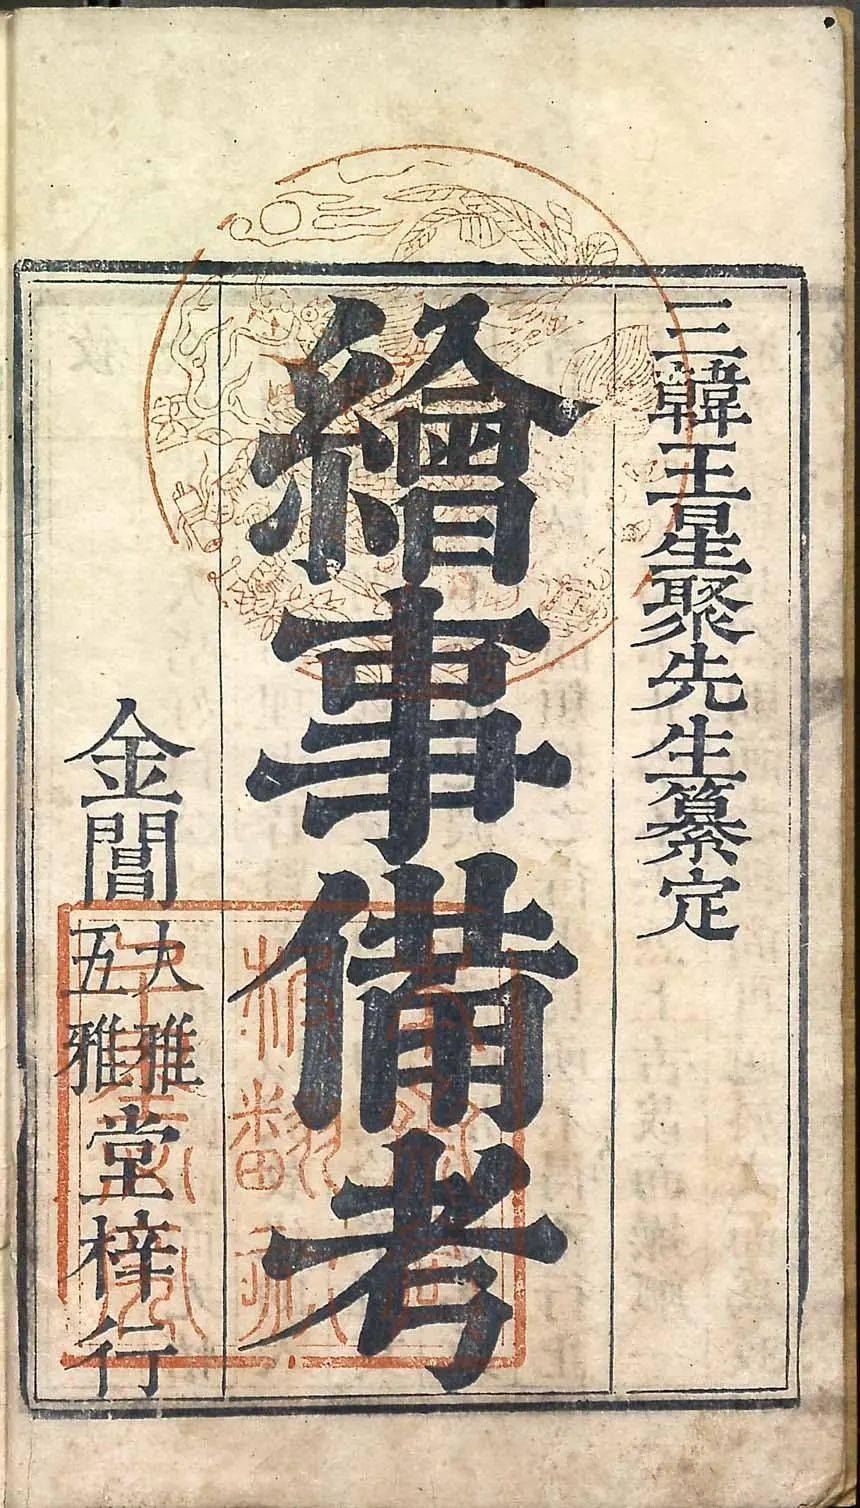 三韓王星聚先生纂定
繪事備考
金閶大雅五雅堂梓行